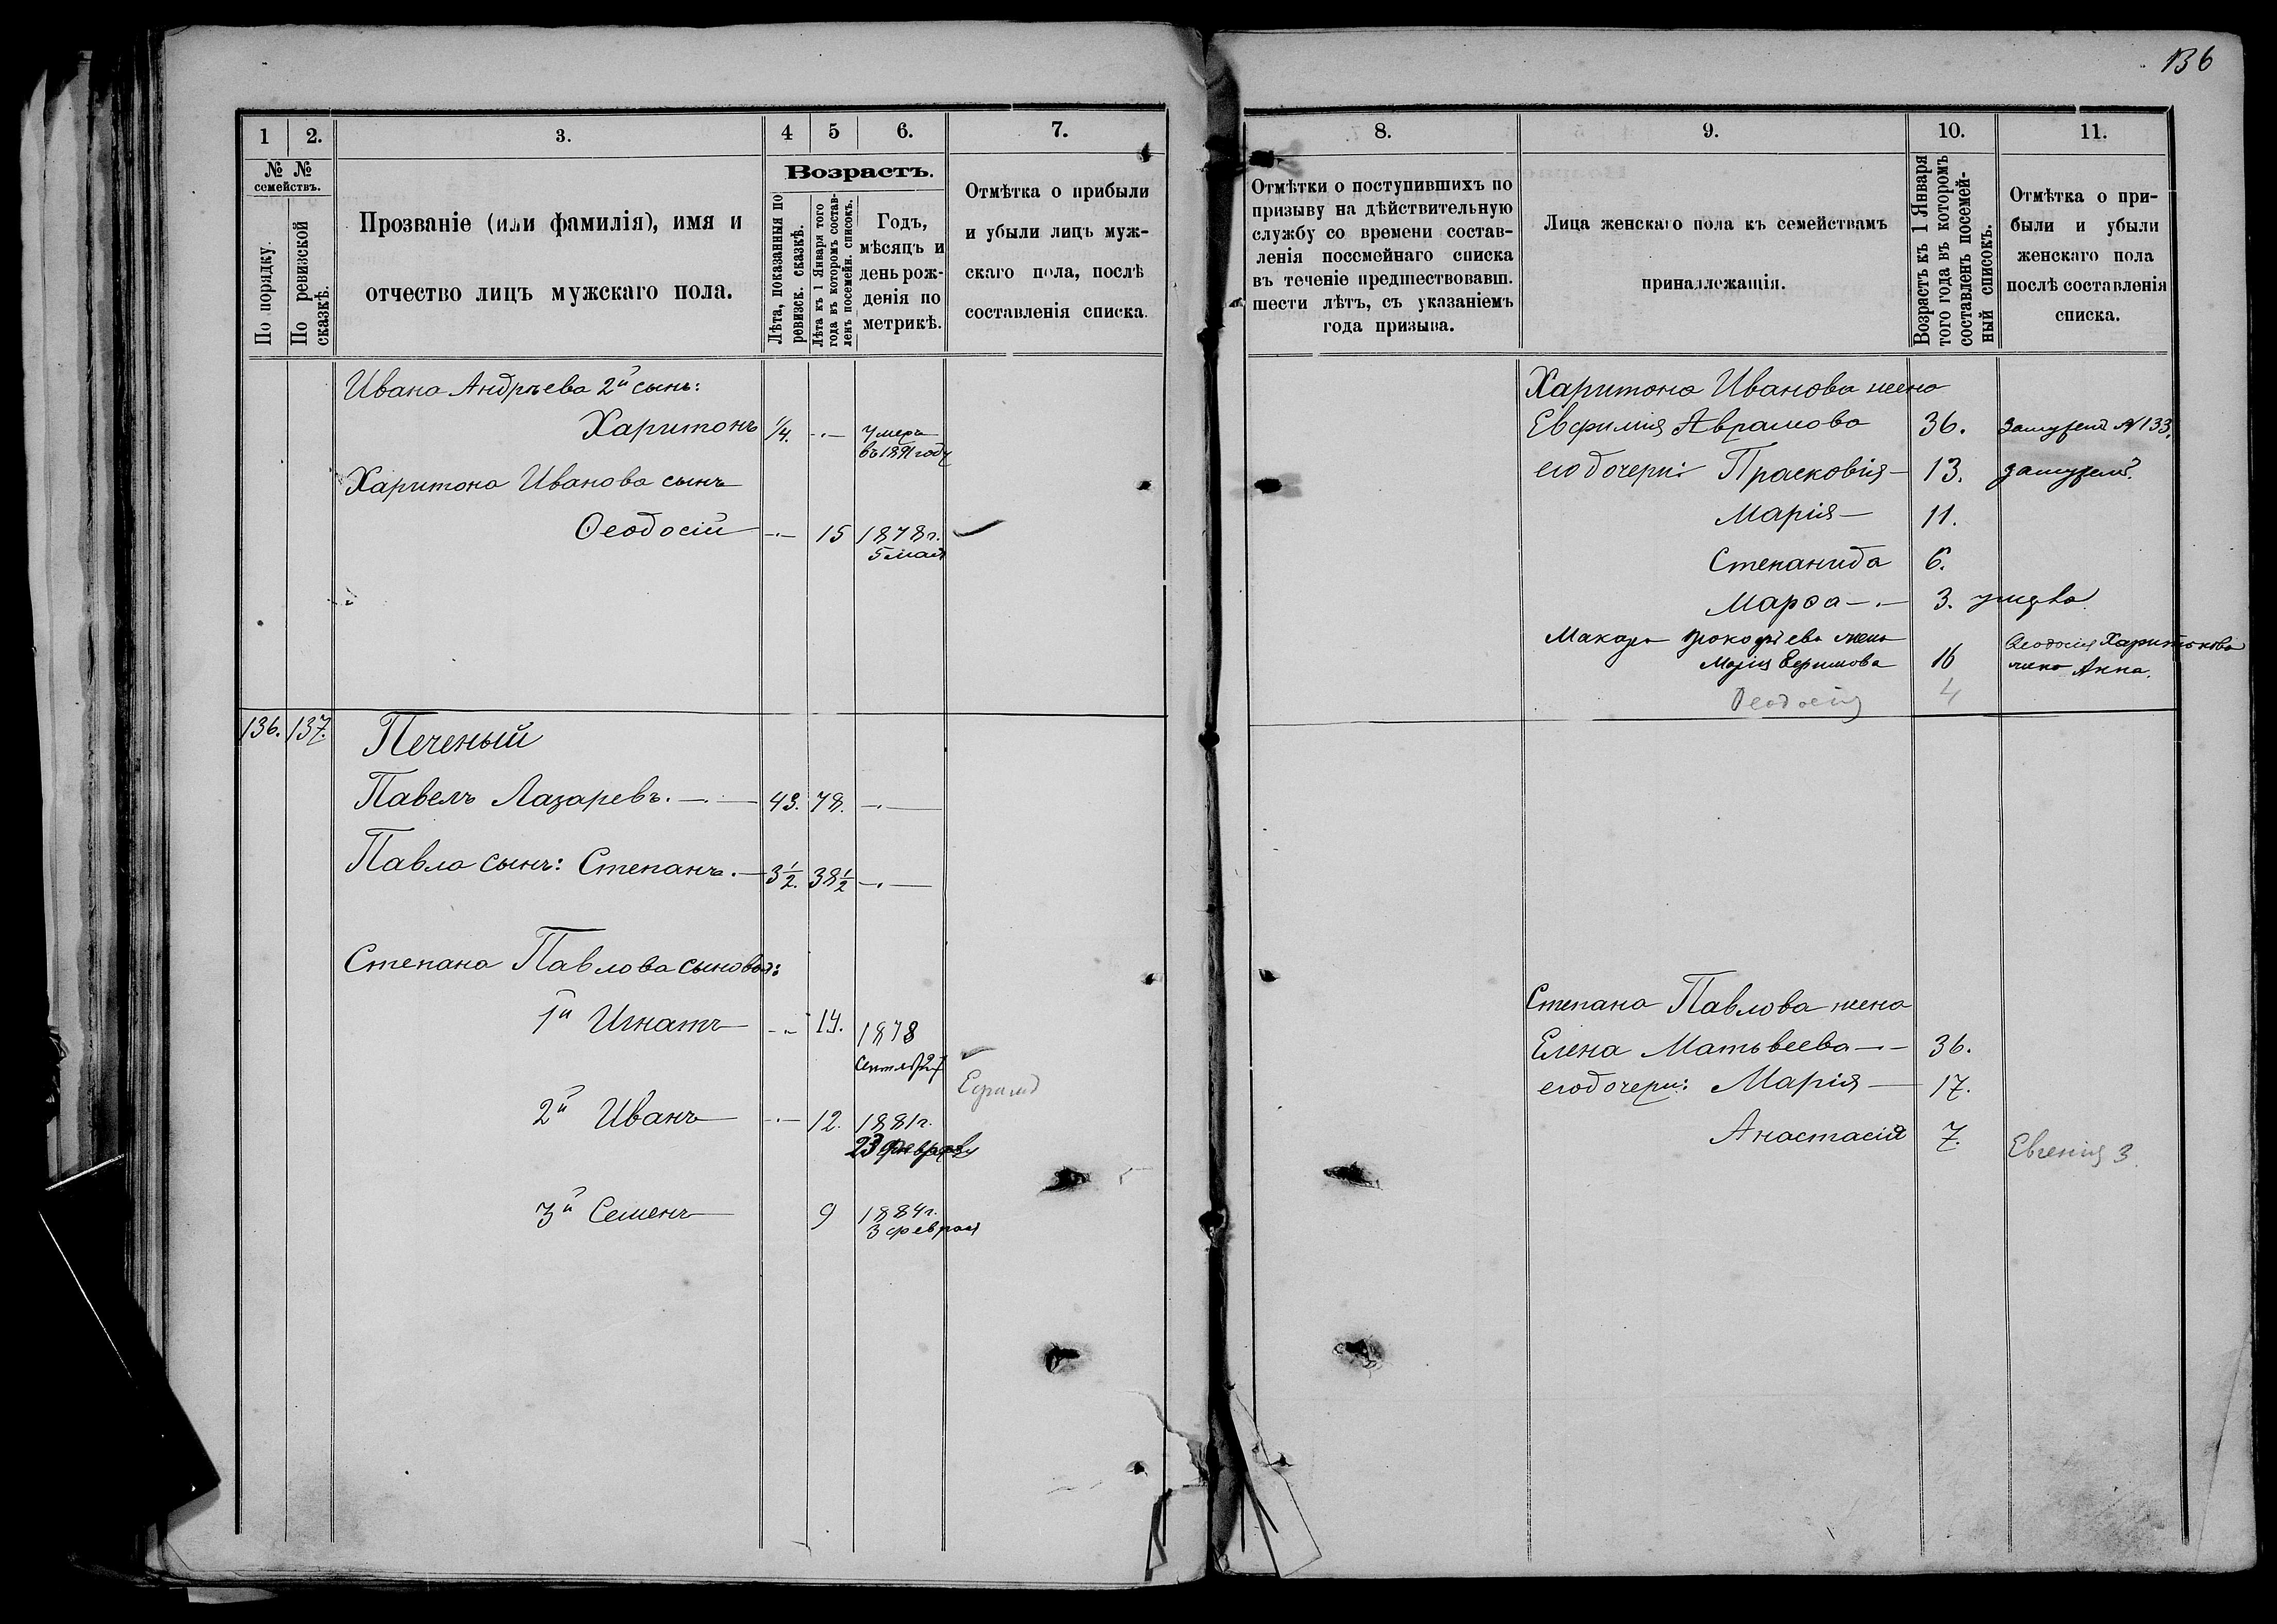 136
1 2. 3. 4 5 6. 7.
№ № семействъ.
По порядку.
По ревизской сказкѣ.
Прозваніе (или фамилія), имя и
отчество лицъ мужскаго пола.
Возрастъ.
Лѣта, показанныя по ревизск. сказкѣ.
Лѣта къ 1 Января того года въ которомъ составленъ посемейн. списокъ.
Годъ,
мѣсяцъ и
день рож-
денія по
метрикѣ.
Отмѣтка о прибыли
и убыли лицъ муж-
скаго пола, послѣ
составленія списка.
Ивана Андреева 2й сынъ:
Харитонъ 1/4. -.- Умеръ
въ 1891 году
Харитона Иванова сынъ
Ѳеодосій -.- 15 1878г.
5 мая
136. 137. Печеный
Павелъ Лазаревъ. -.- 43. 78. -.-
Павла сынъ: Степанъ. - 3 1/2. 38 1/2 -.-
Степана Павлова сыновья:
1й Игнатъ -.- 14. 1878
Сентяб 27
Ефимъ
2й Иванъ -.- 12. 1881г.
23 Февраля
3й Семенъ 9 1884г.
3 февраля
8. 9. 10. 11.
Отмѣтки о поступившихъ по
призыву на дѣйствительную
службу со времени состав-
ленія поссмейнаго списка
въ теченіе предшествовавш.
шести лѣтъ, съ указаніемъ
года призыва.
Лица женскаго пола къ семействамъ
принадлежащія.
Возрастъ къ 1 Января
того года въ которомъ
составленъ посемей-
ный списокъ.
Отмѣтка о при-
были и убыли
женскаго пола
послѣ составленія
списка.
Харитона Иванова жена
Евфимія Аврамова 36. замужемъ № 133.
его дочери: Прасковія - 13. замужемъ
Марія - 11.
Степанида 6.
Марѳа -.- 3. умерла
Макара Прокофьева жена
Марія Ефимова 16 Ѳеодосія Харитонова
жена Анна.
Ѳеодосія 4
Степана Павлова жена
Елена Матвеева -.- 36.
его дочери: Марія - 17.
Анастасія 7. Евгенія 3.